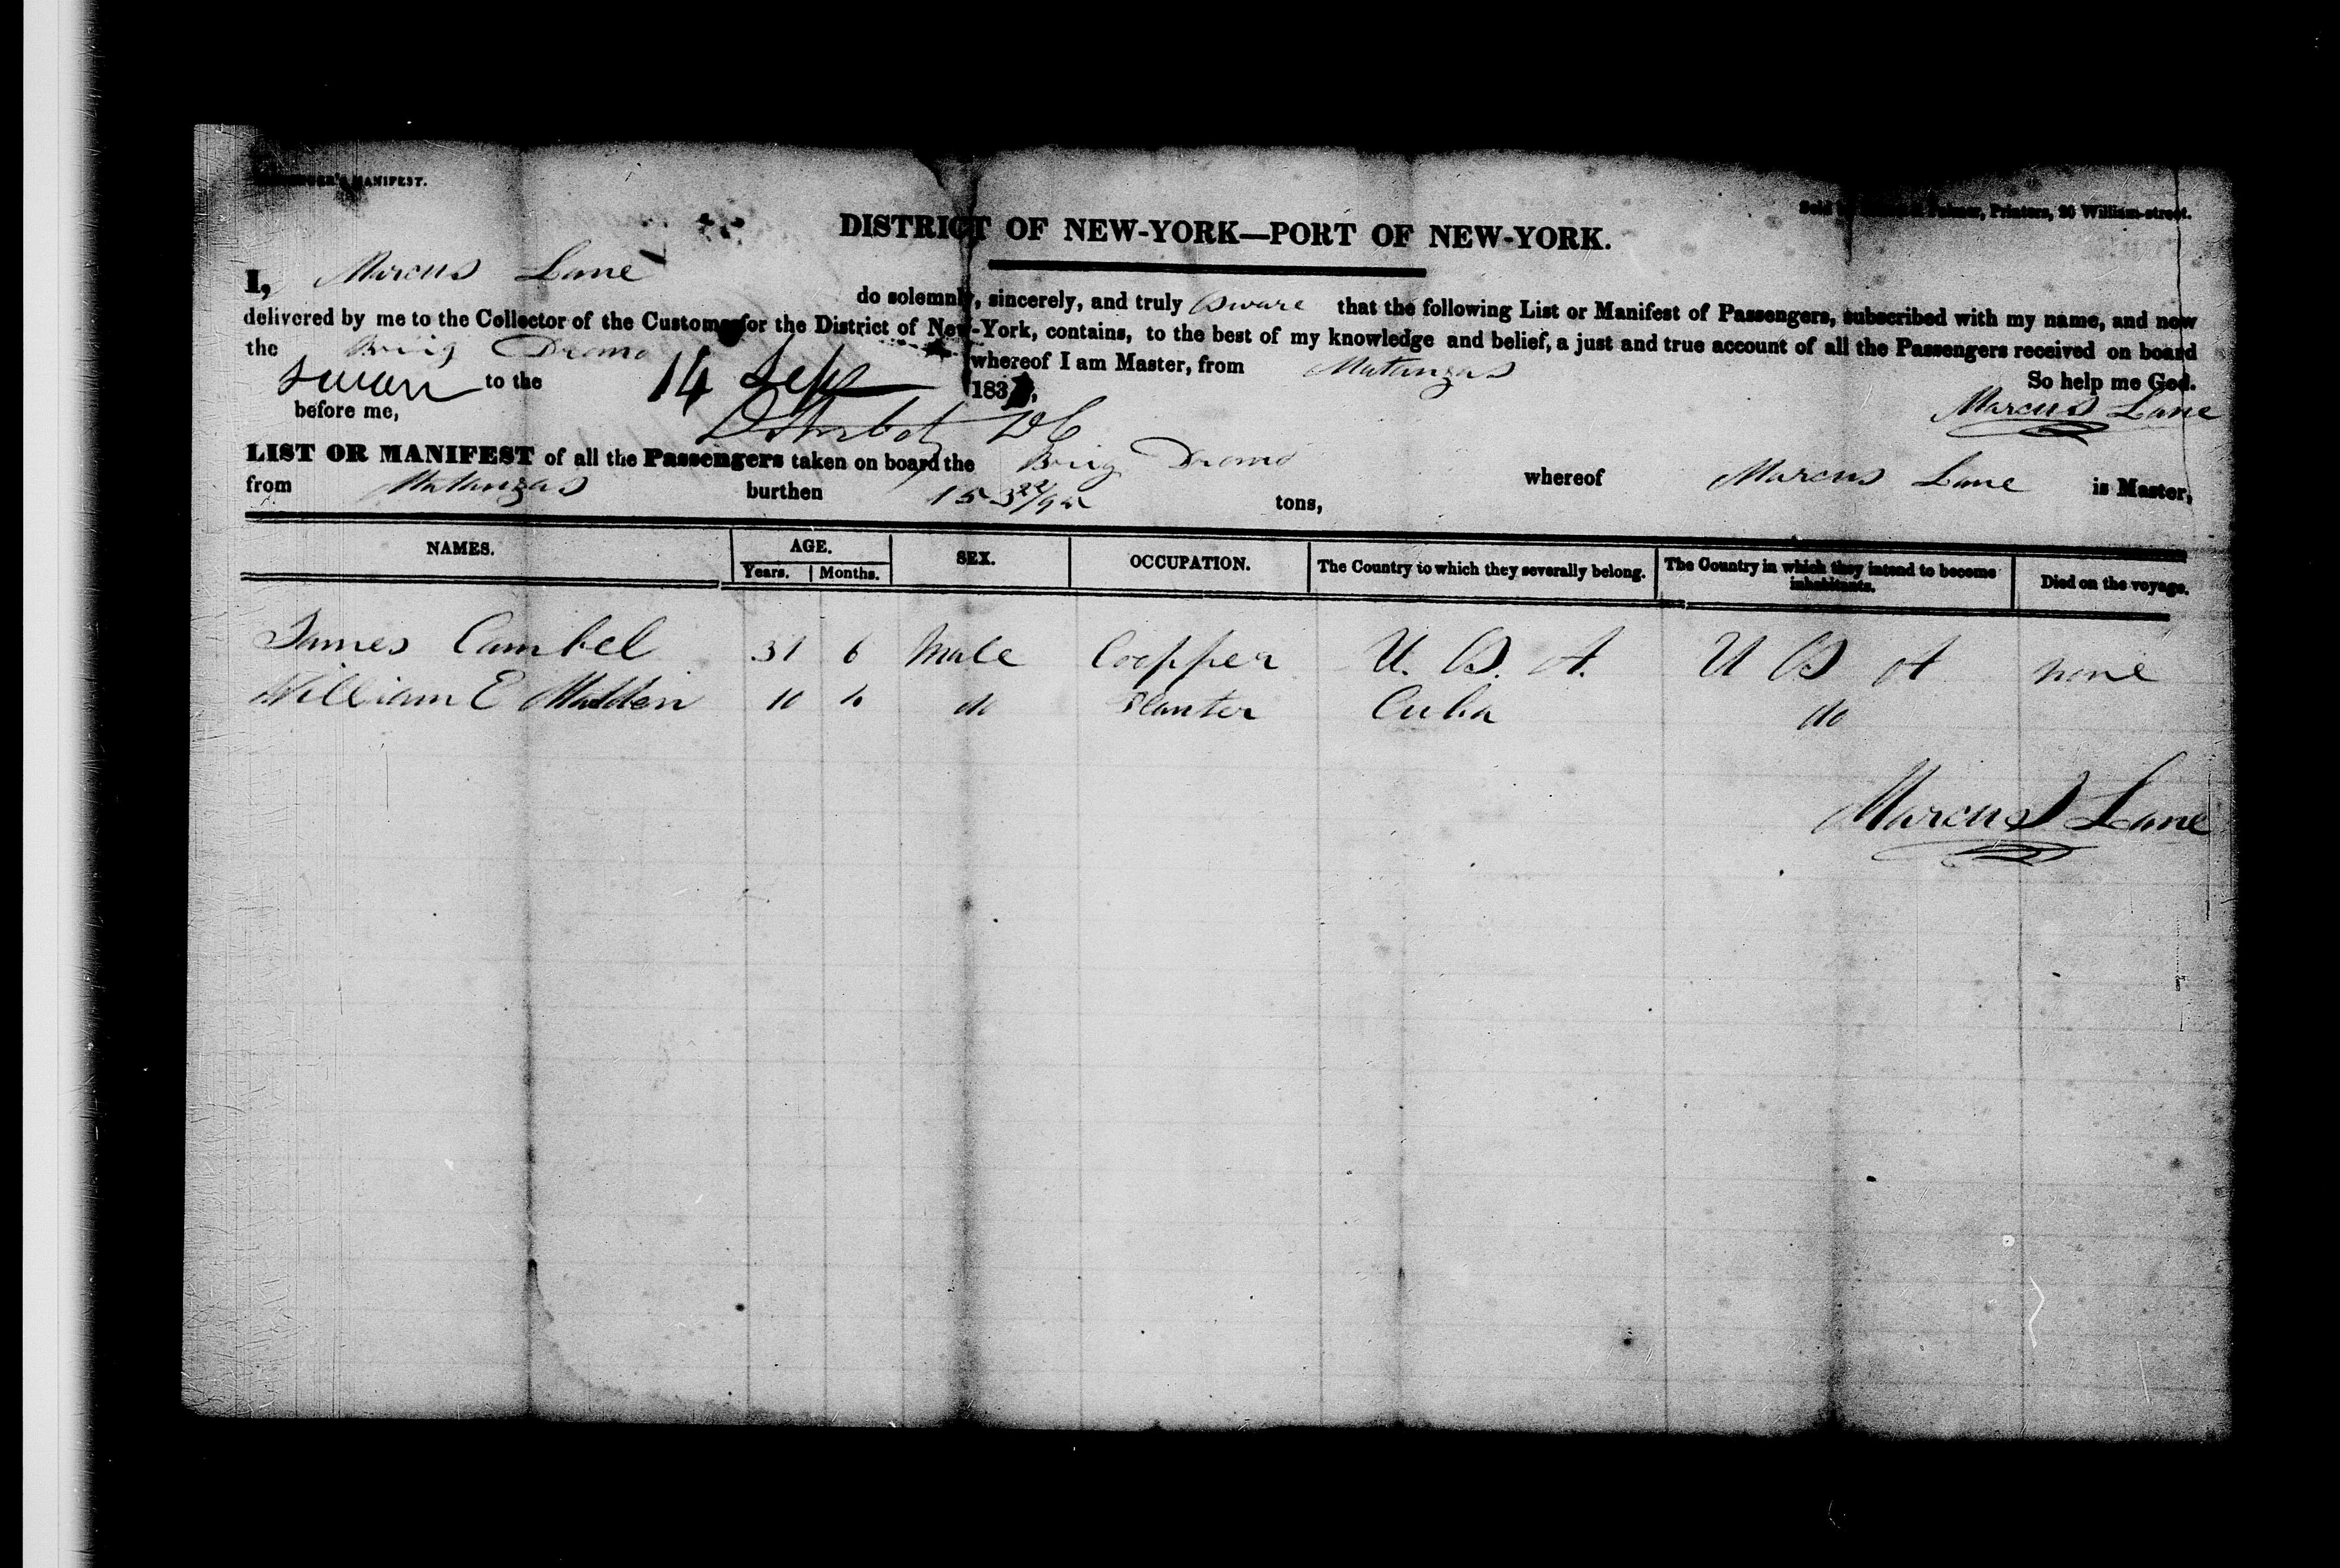 MANIFEST.
Printers, 20 William-street.
DISTRICT OF NEW-YORK—PORT OF NEW-YORK.
I, Marcus Lane do solemnly, sincerely, and truly Sware that the following List or Manifest of Passengers, subscribed with my name, and now
delivered by me to the Collector of the Customs for the District of New-York, contains, to the best of my knowledge and belief, a just and true account of all the Passengers received on board
the Brig Dromo whereof I am Master, from Matanzas
So help me God.
Sworn to the 14 Sep 183
before me,
Marcus Lane
LIST OR MANIFEST of all the Passengers taken on board the Brig Dromo whereof Marcus Lane is Master,
from Matanzas burthen 153 22/95 tons,
NAMES. AGE. SEX. OCCUPATION. The Country to which they severally belong. The Country in which they intend to become inhabitants. Died on the voyage.
Years. Months.
James Cambel 31 6 Male Coopper U. S. A. U S A none
William E Madden 10 do Planter Cuba do
Marcus Lane